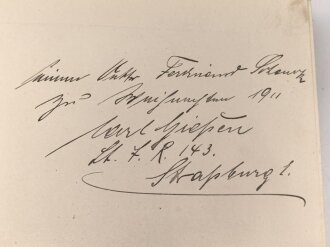 seinem Ferdinand
zu Weihnachten 1911
Karl Gießen
Lt. J. R. 143.
Straßburg i.